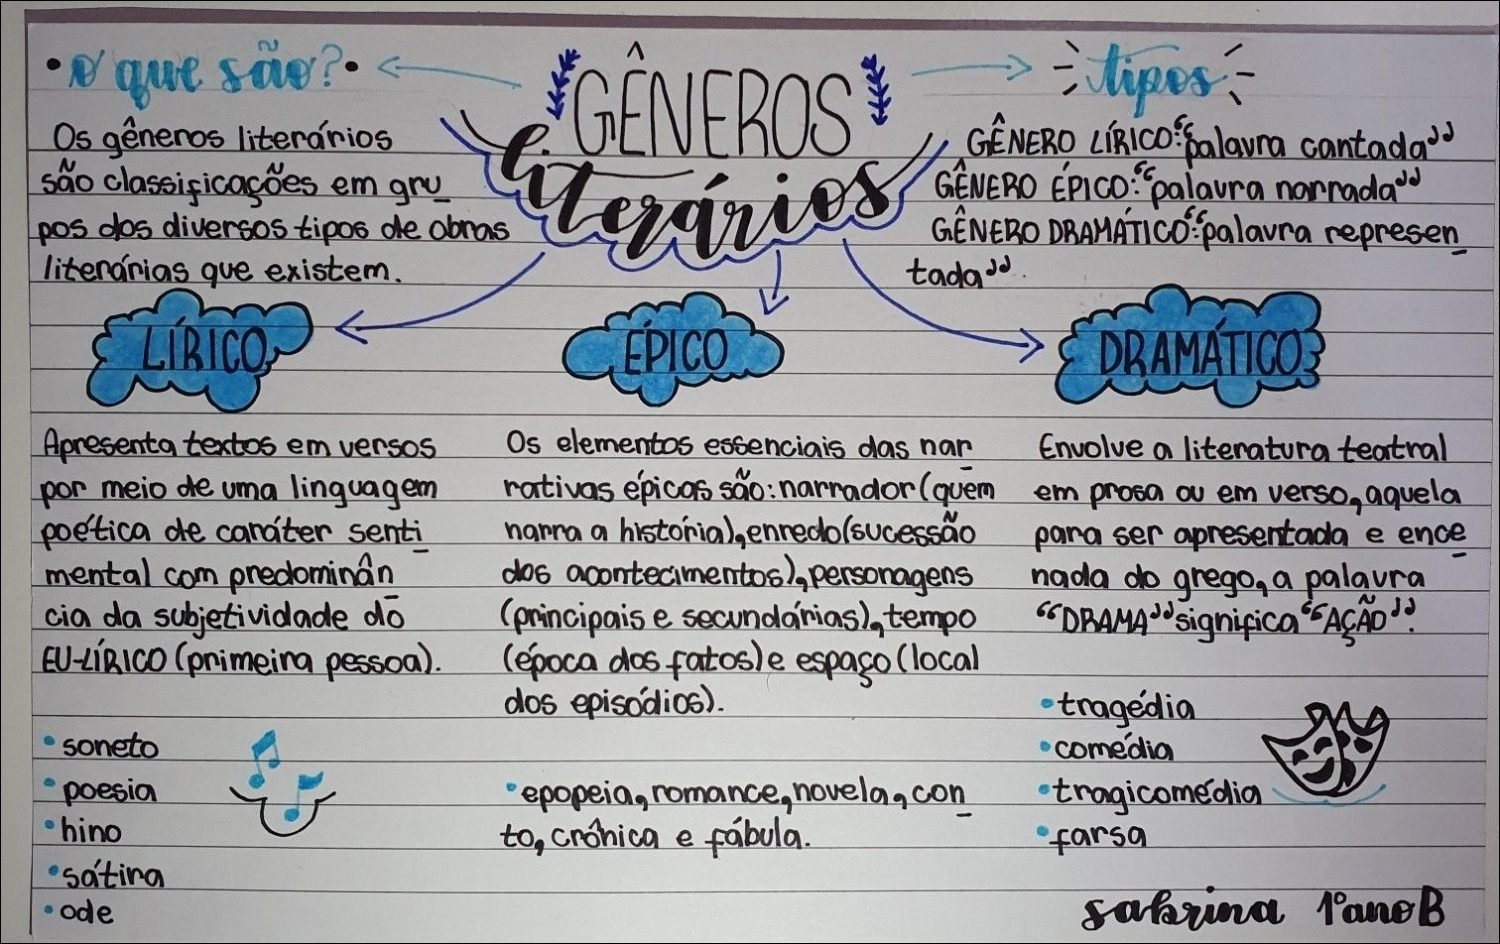 • o que são? •
GÊNEROS
literários
tipos
Os gêneros literários
são classificações em gru
pos dos diversos tipos de obras
literárias que existem.
GÊNERO LÍRICO: “palavra cantada”
GÊNERO ÉPICO: “palavra narrada”
GÊNERO DRAMÁTICO: “palavra represen
tada”.
LÍRICO
Apresenta textos em versos
por meio de uma linguagem
poética de caráter senti
mental com predominân
cia da subjetividade do
EU-LÍRICO (primeira pessoa).
• soneto
• poesia
• hino
• sátira
• ode
ÉPICO
Os elementos essenciais das nar
rativas épicas são: narrador (quem
narra a história), enredo (sucessão
dos acontecimentos), personagens
(principais e secundárias), tempo
(época dos fatos) e espaço (local
dos episódios).
• epopeia, romance, novela, con
to, crônica e fábula.
DRAMÁTICO
Envolve a literatura teatral
em prosa ou em verso, aquela
para ser apresentada e ence
nada do grego, a palavra
“DRAMA” significa “AÇÃO”.
• tragédia
• comédia
• tragicomédia
• farsa
sabrina 1º ano B